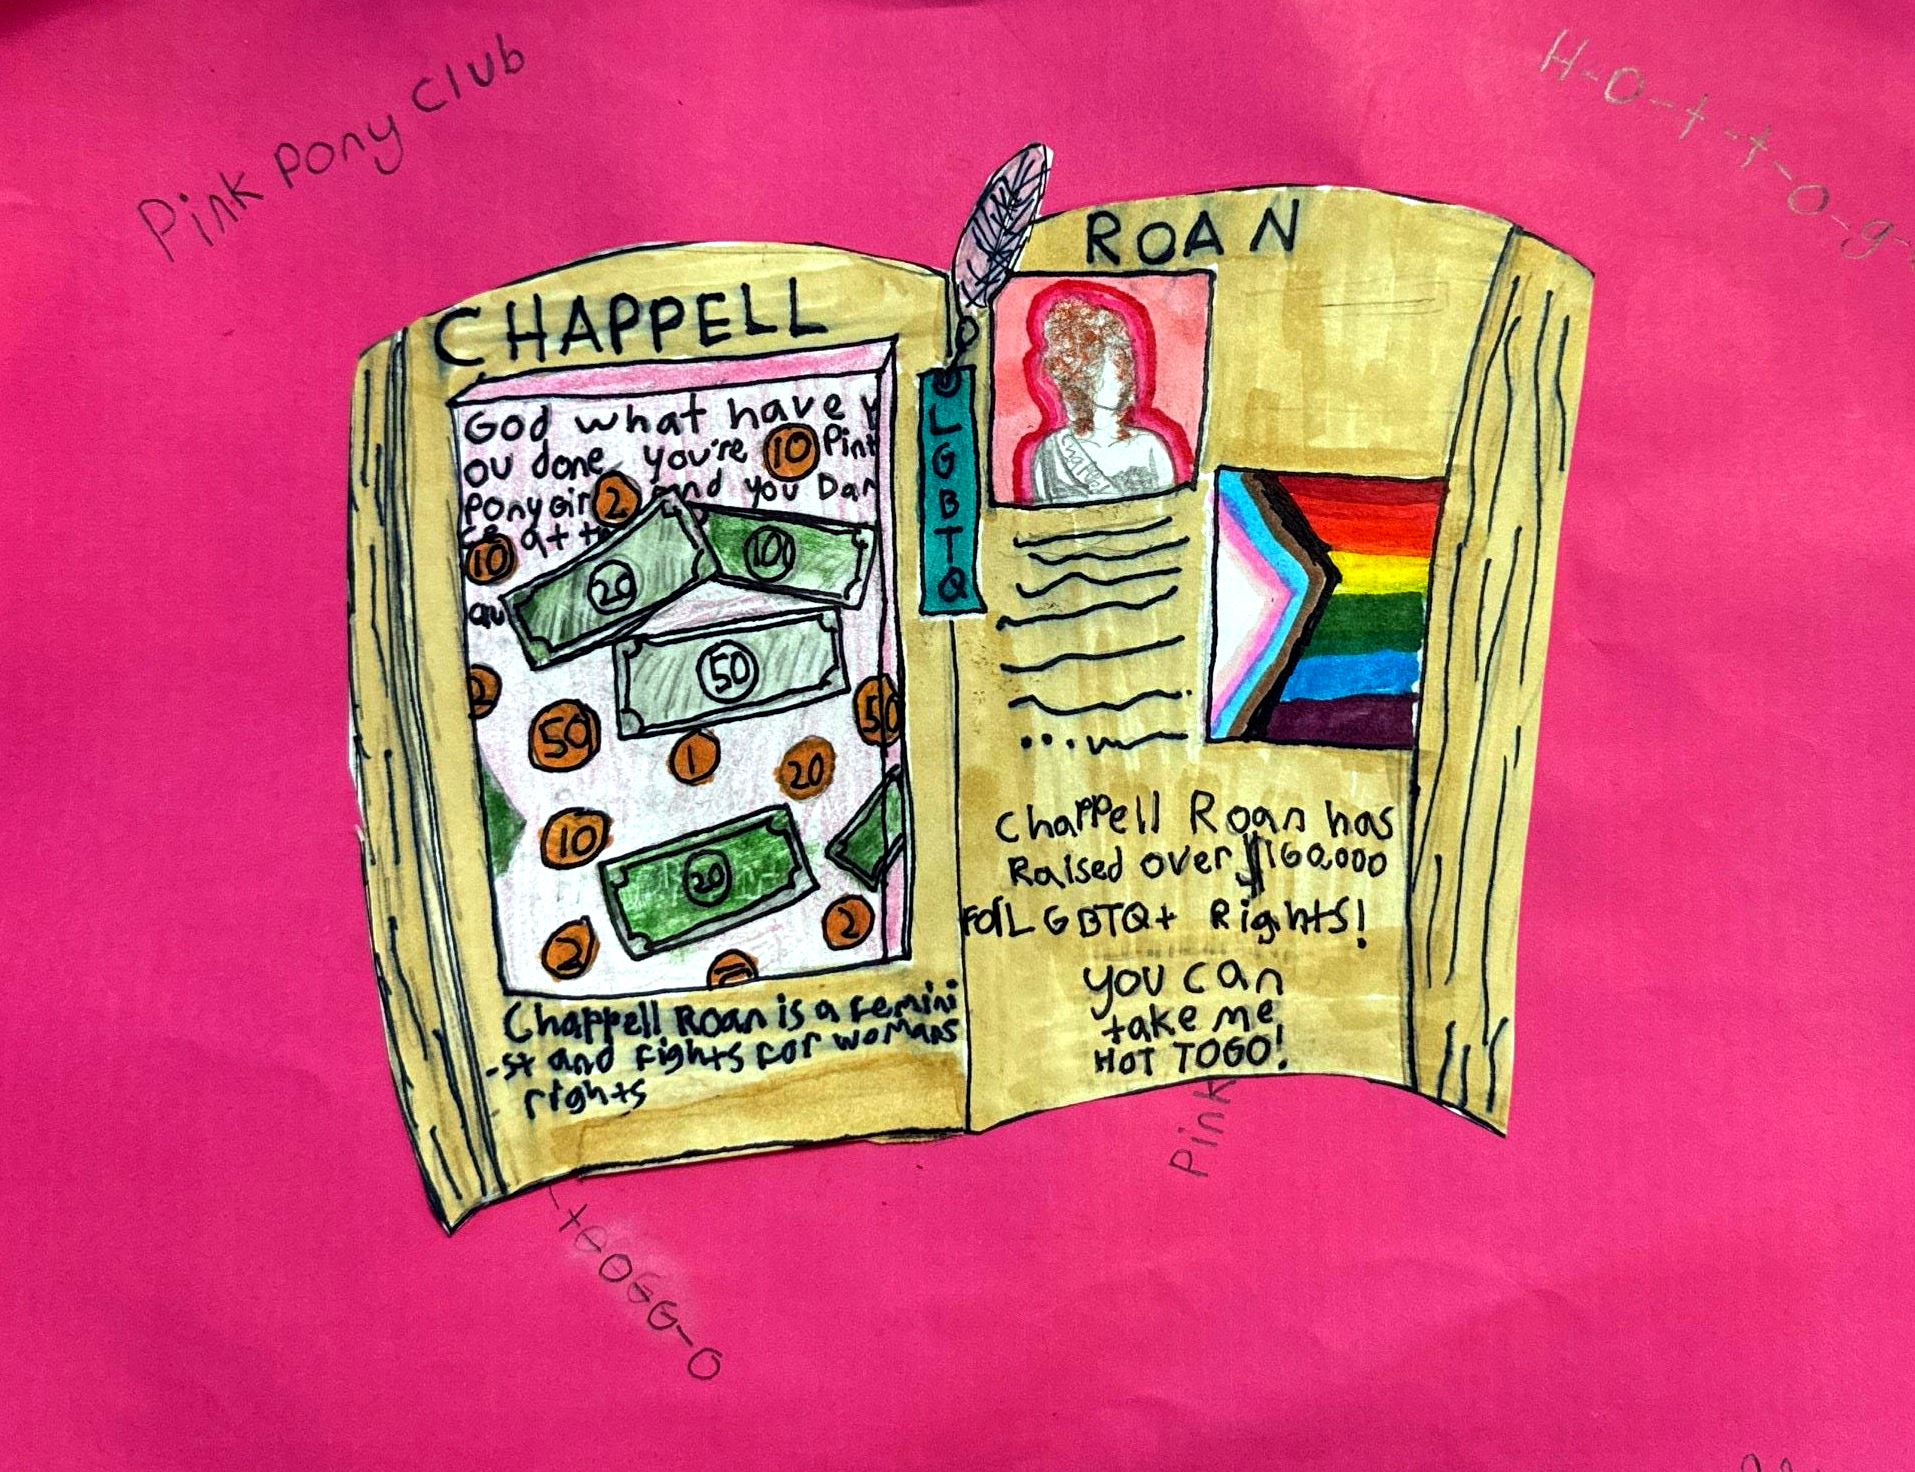 Pink Pony Club
H-O-t-t-o-g-
CHAPPELL
God what have y
ou done you're 10 Pink
Pony Girl 2 and you Dan
ce at t
10
20
100
50
2
50
1
20
50
10
20
2
2
Chappell Roan is a femini
-st and fights for womans
rights
LGBTQ
ROAN
Chappell Roan has
Raised over $160,000
For LGBTQ+ Rights!
you can
take me
HOT TOGO!
Pink
-tOGG-O